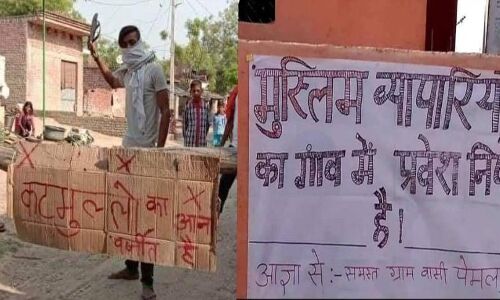 कटमुल्लो का आन
वर्जीत है
मुस्लिम व्यापारिय
का गांव में प्रवेश निषे
है।
आज्ञा से :- समस्त ग्राम वासी पेमल